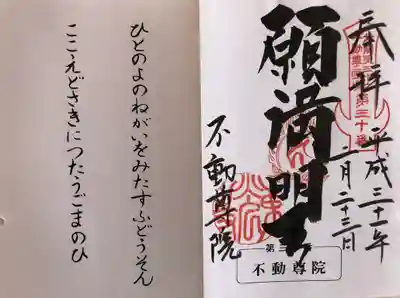 奉拝
平成三十一年
一月二十三日
願満明王
不動尊院
第三十番
不動尊院
ひとのよのねがいをみたすふどうそん
ここえどさきにつたうごまのひ